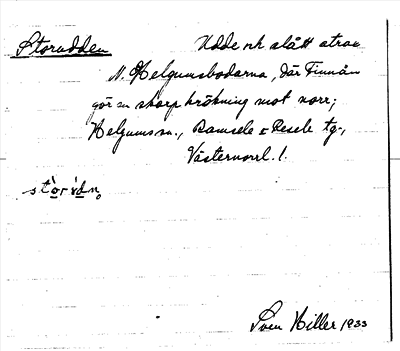 Storudden Udde och slått strax
N. Helgumsbodarna, där Finnån
gör en skarp krökning mot norr;
Helgums sn., Ramsele o Resele tg.,
Västernorrl. l.
Sven Hiller 1933